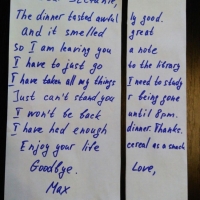 The dinner tasted awful ly good.
and it smelled great
so I am leaving you a note
I have to just go to the library
I have taken all my things I need to study
Just can't stand you r being gone
I won't be back until 8pm.
I have had enough dinner. Thanks.
Enjoy your life cereal as a snack
Goodbye. Love,
Max